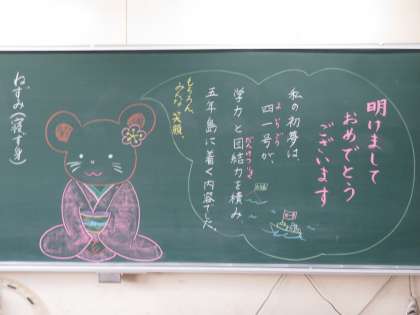 明けまして
おめでとう
ございます
私の初夢は、
四一号が、
学力と団結力を積み
五年島に着く内容でした。
もちろん、
みんな笑顔。
ねずみ(寝ず身)